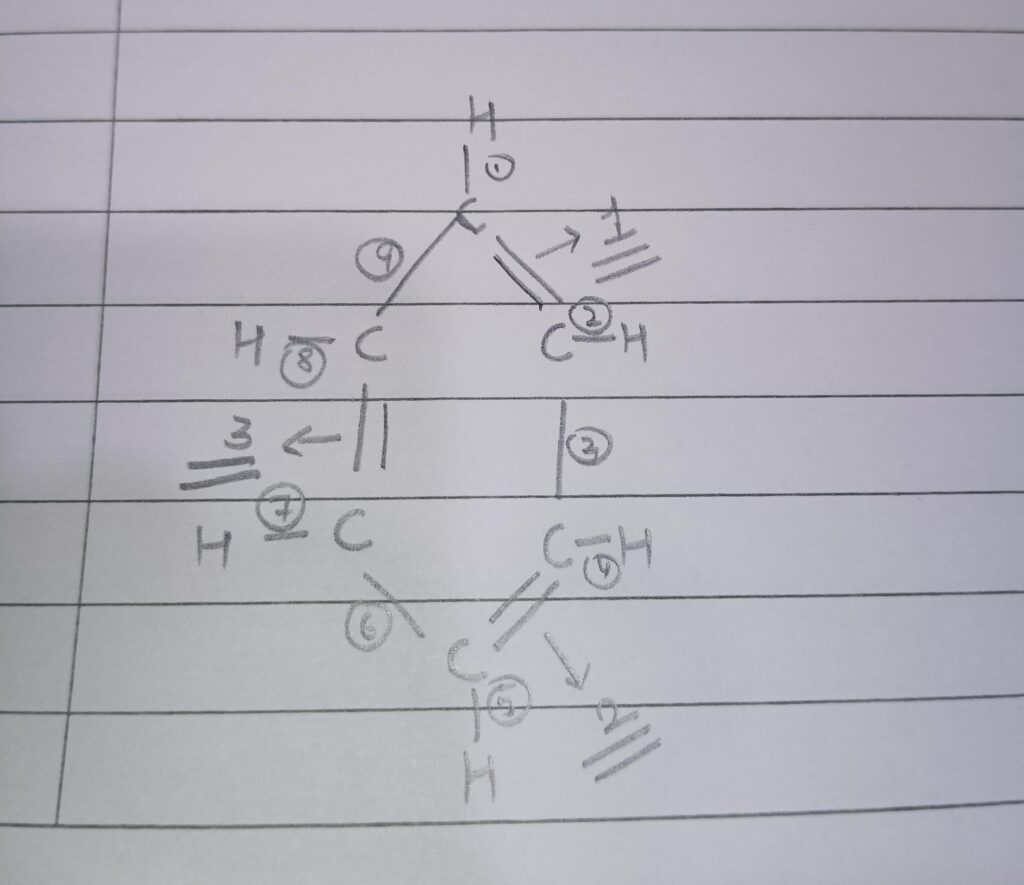 H
①
C
→ 1
⑨
H ⑧ C
C ② H
3 ←
③
H ⑦ C
C ④ H
⑥
C
⑤
→ 2
H